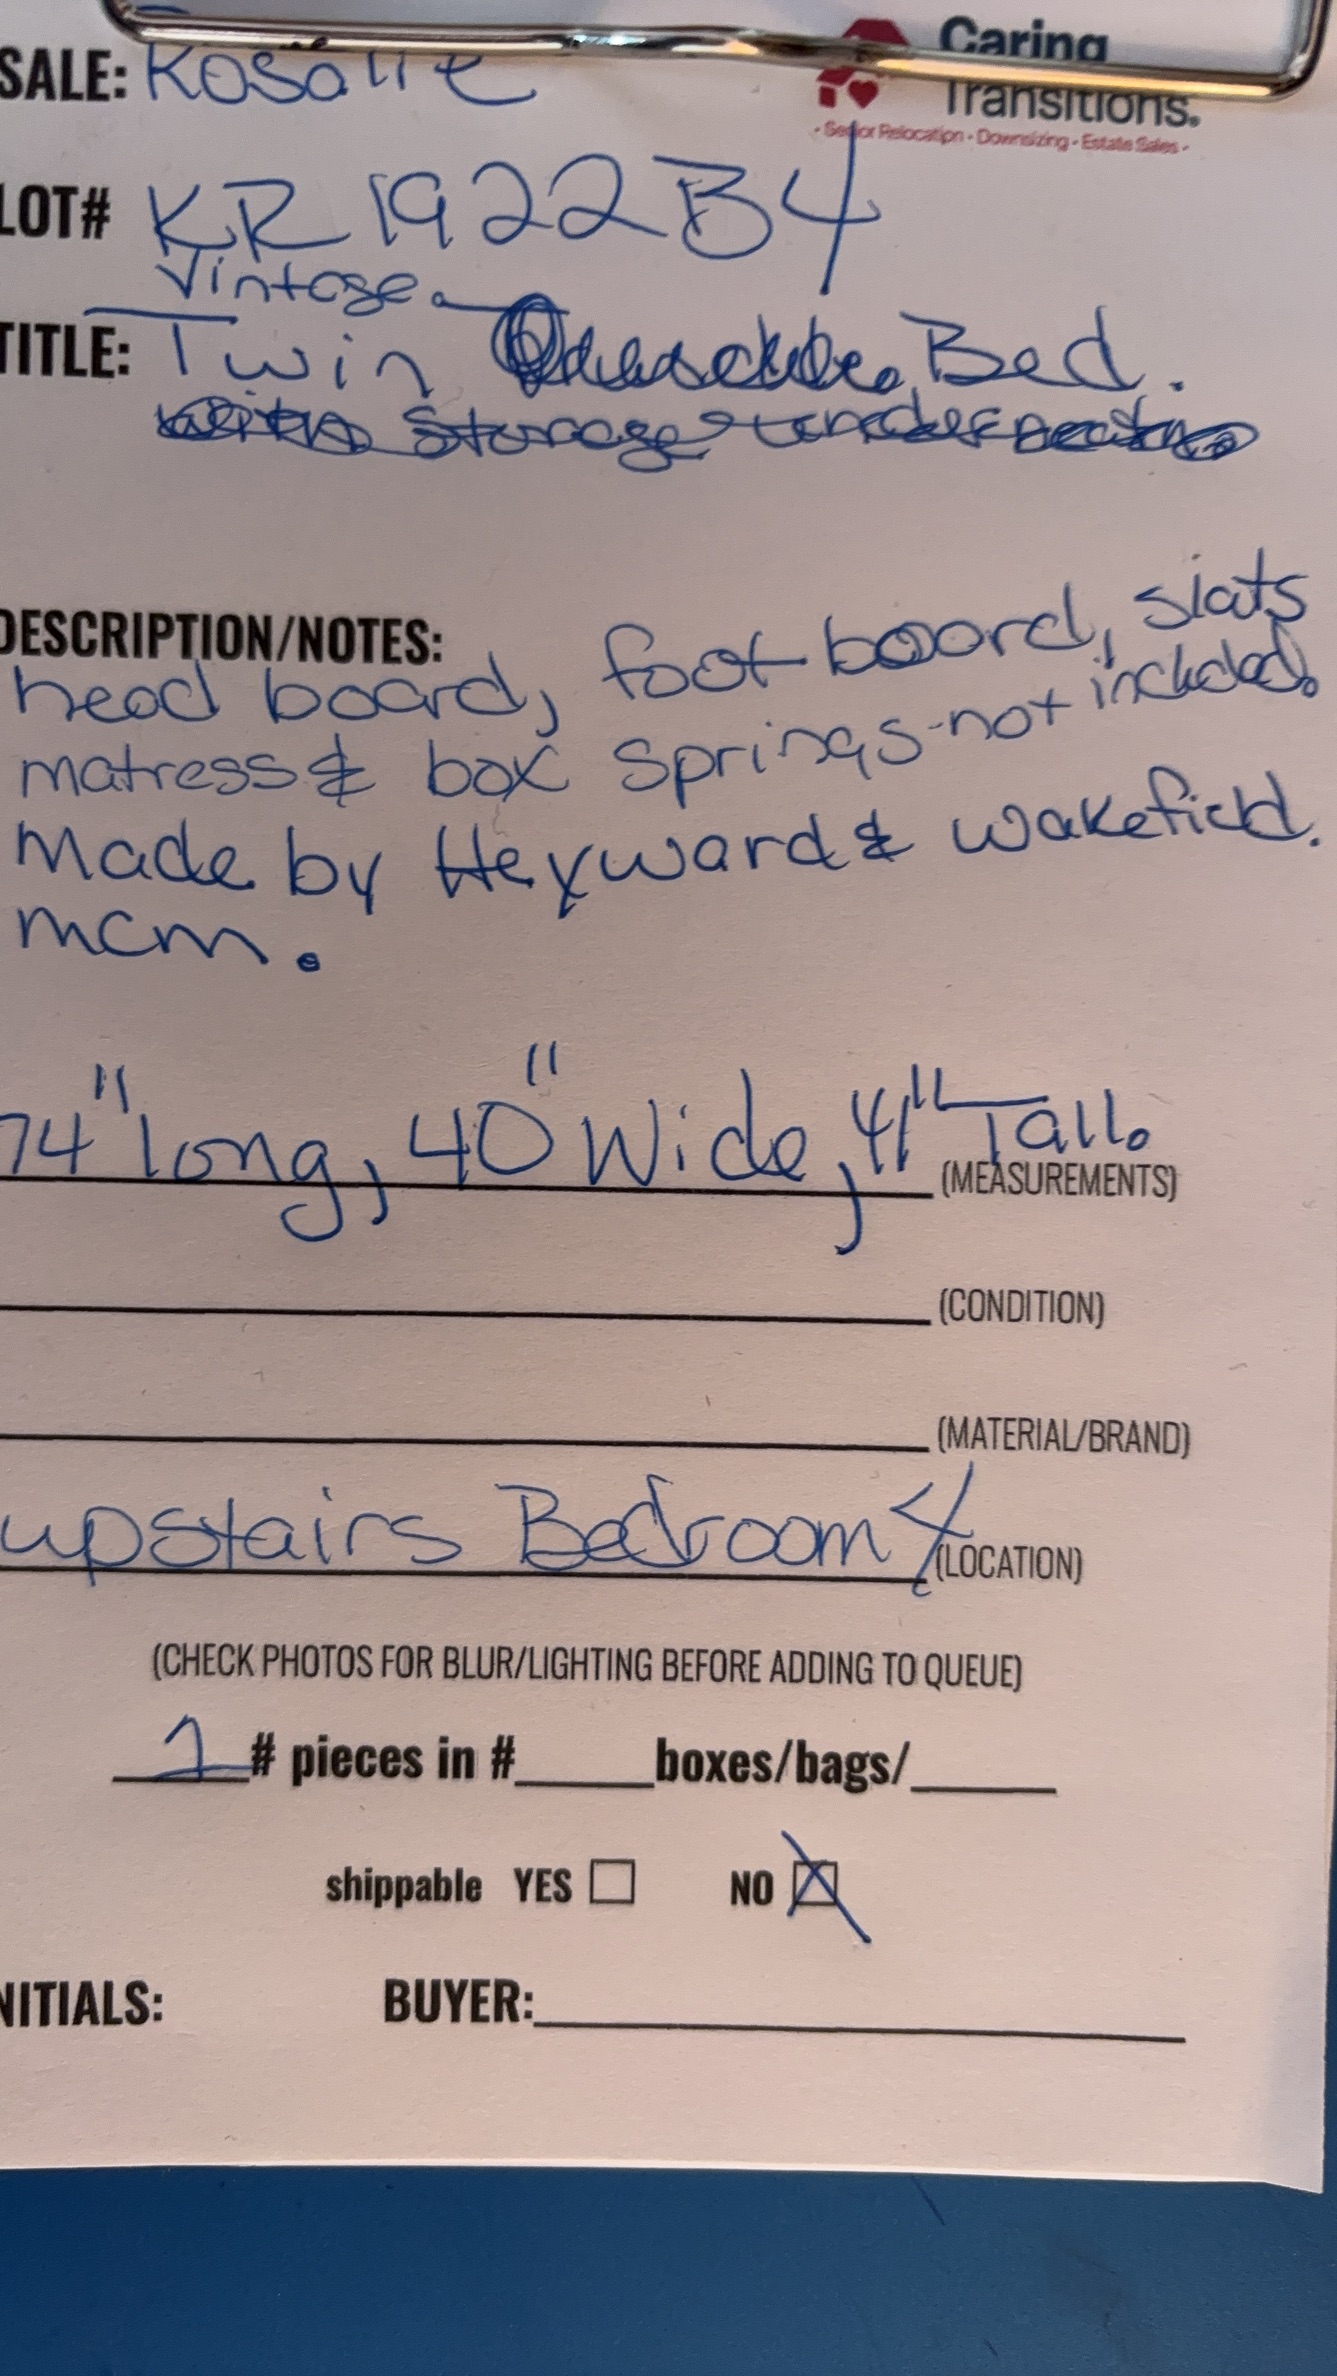 SALE: Rosalie
Caring
Transitions.
- Senior Relocation - Downsizing - Estate Sales -
LOT# KR 1922 B4
Vintage
TITLE: Twin Bed.
DESCRIPTION/NOTES:
head board, foot board, slats
matress & box springs-not included.
Made by Heyward & Wakefield.
mcm.
74" long, 40" Wide, 41" Tall.
(MEASUREMENTS)
(CONDITION)
(MATERIAL/BRAND)
upstairs Bedroom 4 (LOCATION)
(CHECK PHOTOS FOR BLUR/LIGHTING BEFORE ADDING TO QUEUE)
1 # pieces in # boxes/bags/
shippable YES ☐ NO ☒
NITIALS: BUYER: